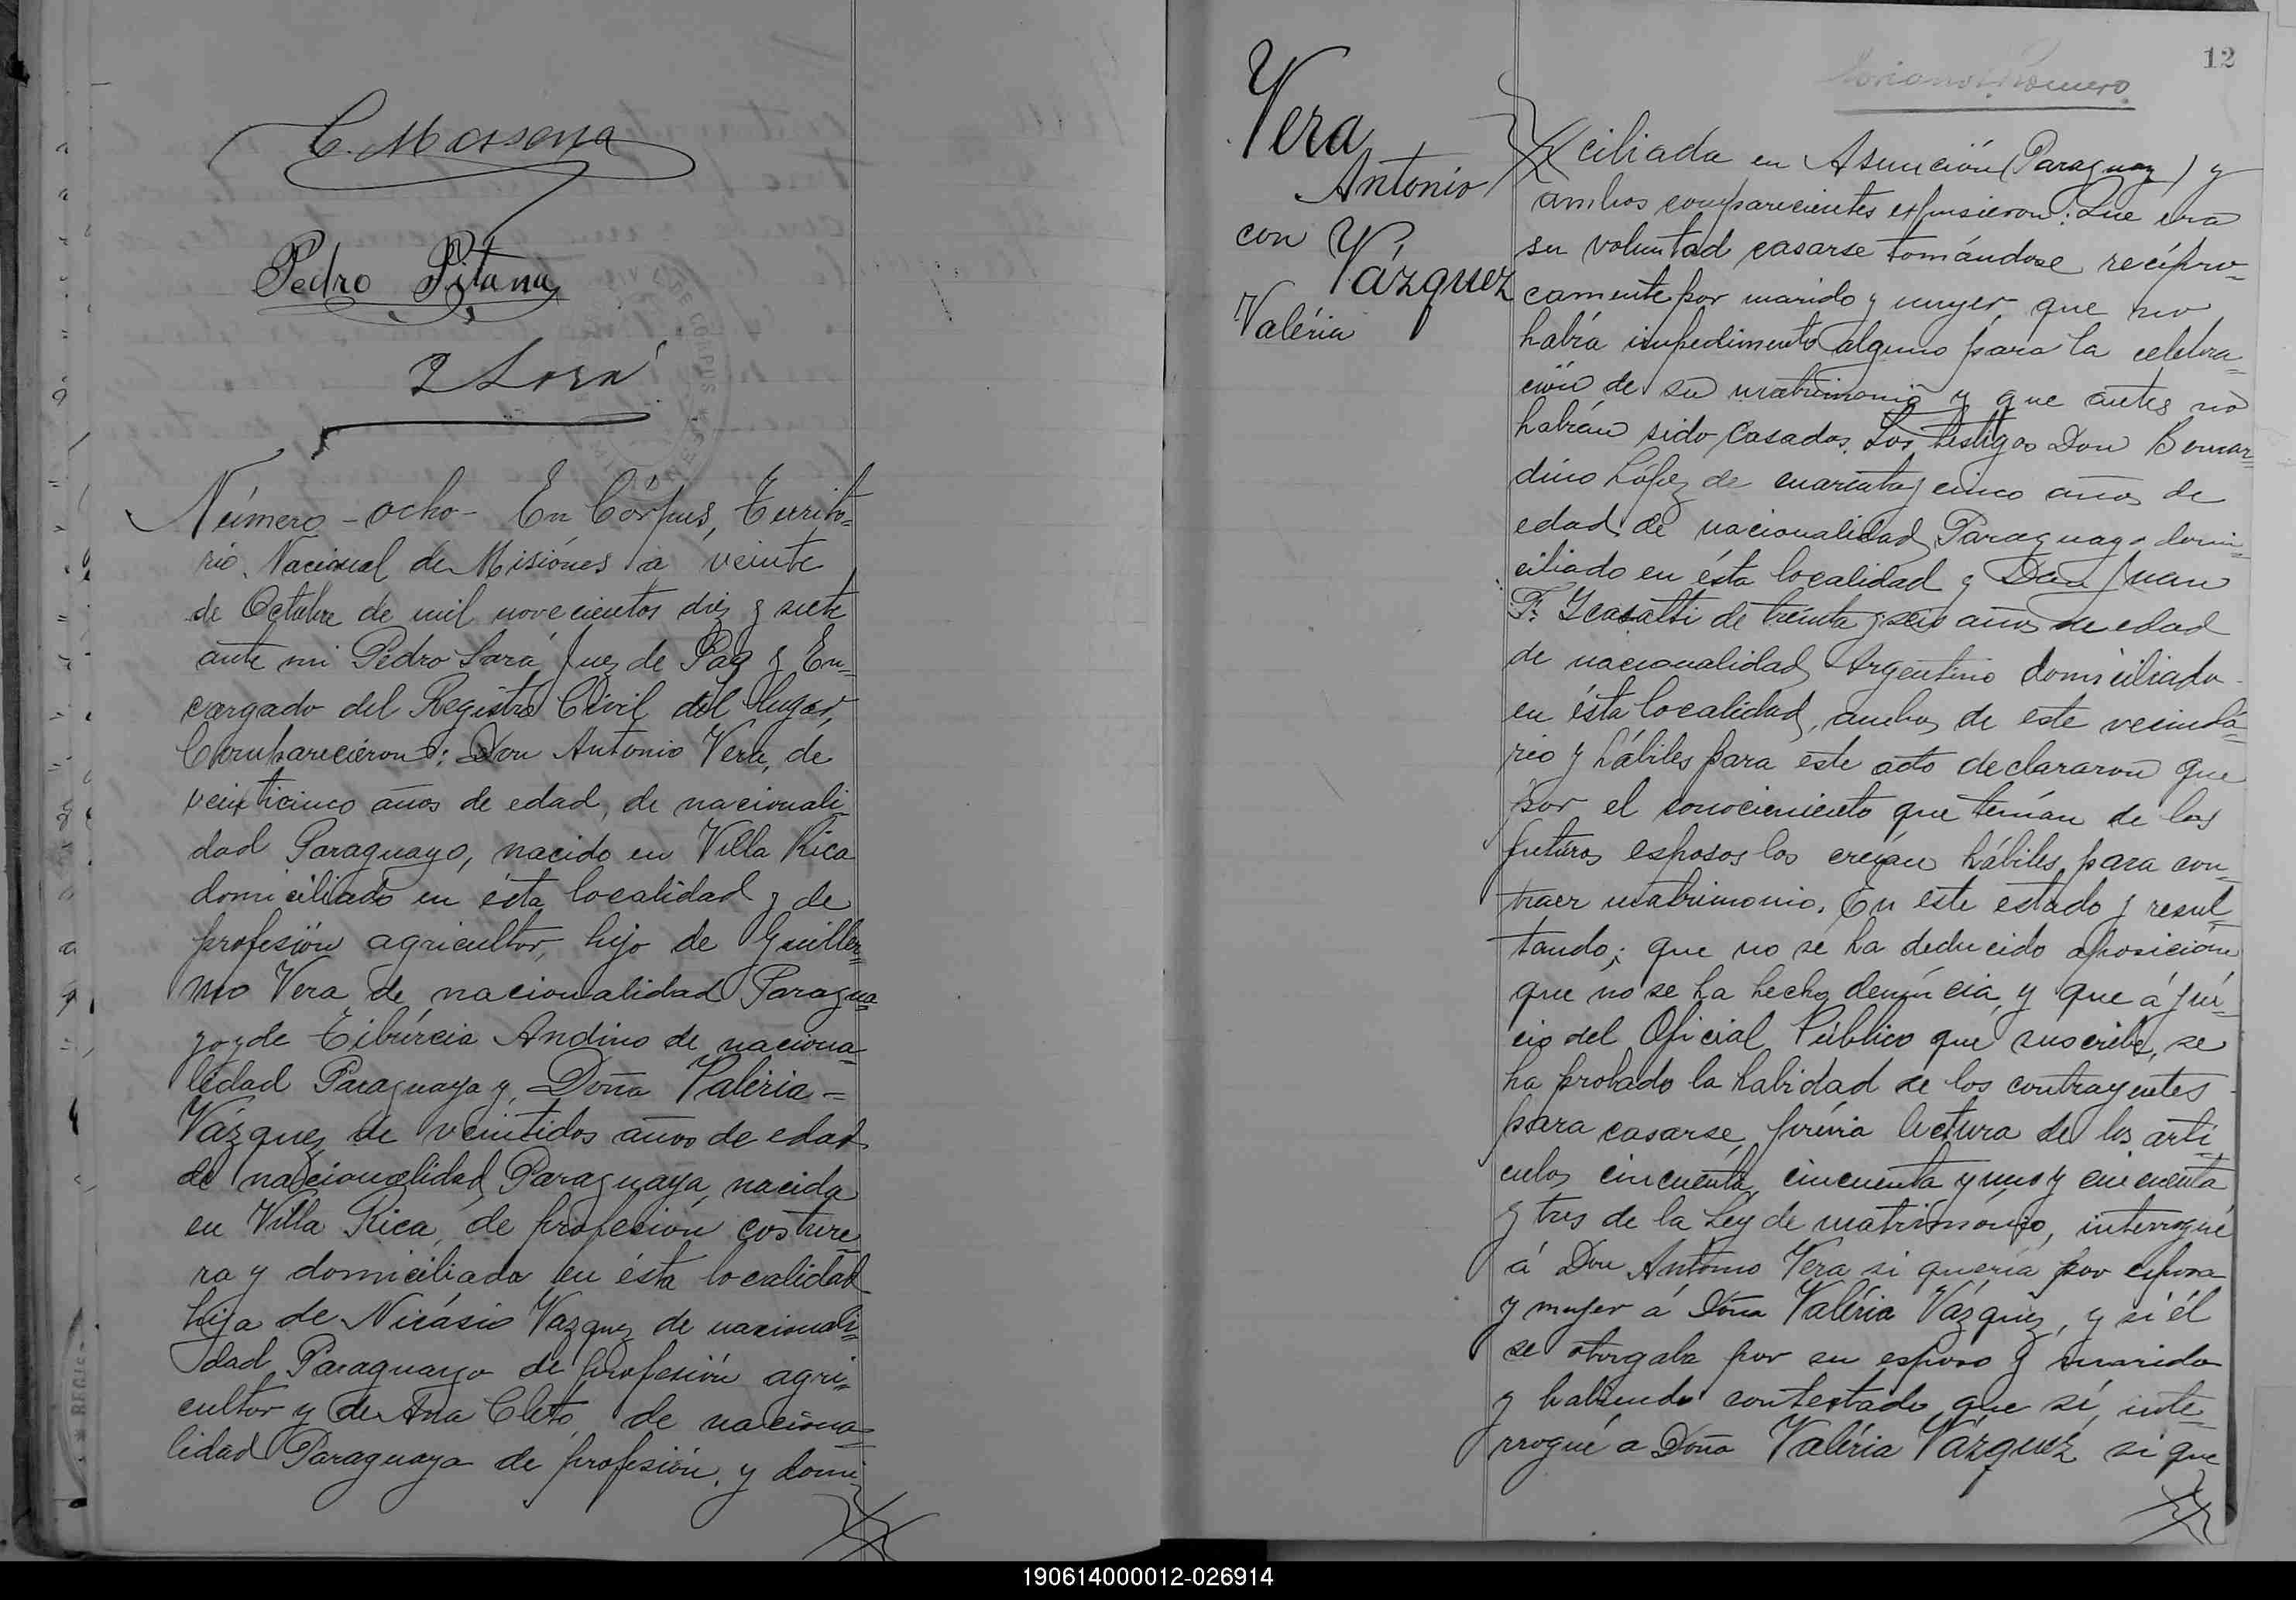 C. Massena
Pedro Pitana
P Sará
Número - ocho - En Córpus, Territo=
rio Nacional de Misiónes a veinte
de Octubre de mil novecientos diez y siete
ante mi Pedro Sará Juez de Paz y En=
cargado del Registro Civil del lugar,
Comparecieron: Don Antonio Vera, de
veinticinco años de edad, de nacionali
dad Paraguayo, nacido en Villa Rica
domiciliado en ésta localidad y de
profesión agricultor, hijo de Guiller=
mo Vera de nacionalidad Paragua=
yo y de Tibúrcia Andino de naciona=
lidad Paraguaya y, Doña Valéria =
Vázquez de veintidos años de edad
de nacionalidad Paraguaya, nacida
en Villa Rica, de profesión costure=
ra y domiciliada en ésta localidad
hija de Nicásio Vazquez de nacionali=
dad Paraguayo de profesión agri=
cultor y de Ana Cleto, de naciona=
lidad Paraguaya de profesión, y domi
12
Romero
Vera
Antonio
con
Vázquez
Valéria
ciliada en Asunción (Paraguay) y
ambos comparecientes expusieron: Que era
su voluntad casarse tomándose recípro=
camente por marido y mujer, que no
había impedimento alguno para la celebra=
ción de su matrimonio y que antes no
habían sido casados. Los testigos Don Bernar=
dino López de cuarenta y cinco años de
edad de nacionalidad Paraguayo domi=
ciliado en ésta localidad y Don Juan
F. de treinta y seis años de edad
de nacionalidad Argentino domiciliado
en ésta localidad, ambos de este vecindá=
rio y hábiles para éste acto declararon que
por el conocimiento que tenían de los
futuros esposos los creían hábiles para con=
traer matrimonio. En este estado y resul=
tando; que no se ha deducido oposición
que no se ha hecho denúncia, y que á jui=
cio del Oficial Público que suscribe, se
ha probado la habidad de los contrayentes
para casarse, prévia lectura de los artí
culos cincuenta, cincuenta y uno y cincuenta
y tres de la Ley de matrimonio, interrogué
á Don Antonio Vera si quería por esposa
y mujer á Doña Valéria Vázquez, y si él
se otorgaba por su esposo y marido
y habiendo contestado que sí, inte=
rrogué a Doña Valéria Vázquez si que
190614000012-026914